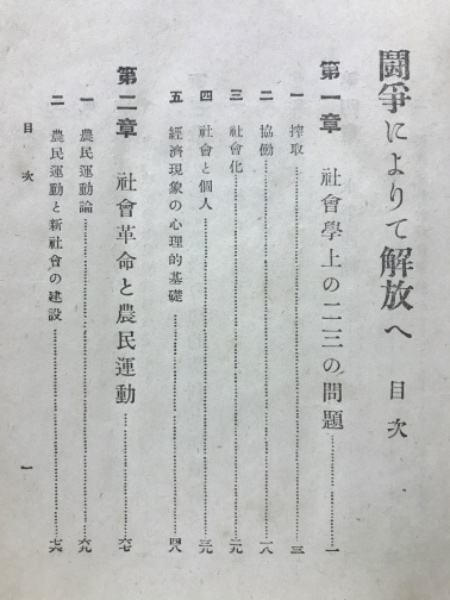 鬪爭によりて解放へ 目次
第一章 社會學上の二三の問題……一
一 搾取……三
二 協働……一八
三 社會化……二九
四 社會と個人……三九
五 經濟現象の心理的基礎……四八
第二章 社會革命と農民運動……六七
一 農民運動論……六九
二 農民運動と新社會の建設……七六
目次
一